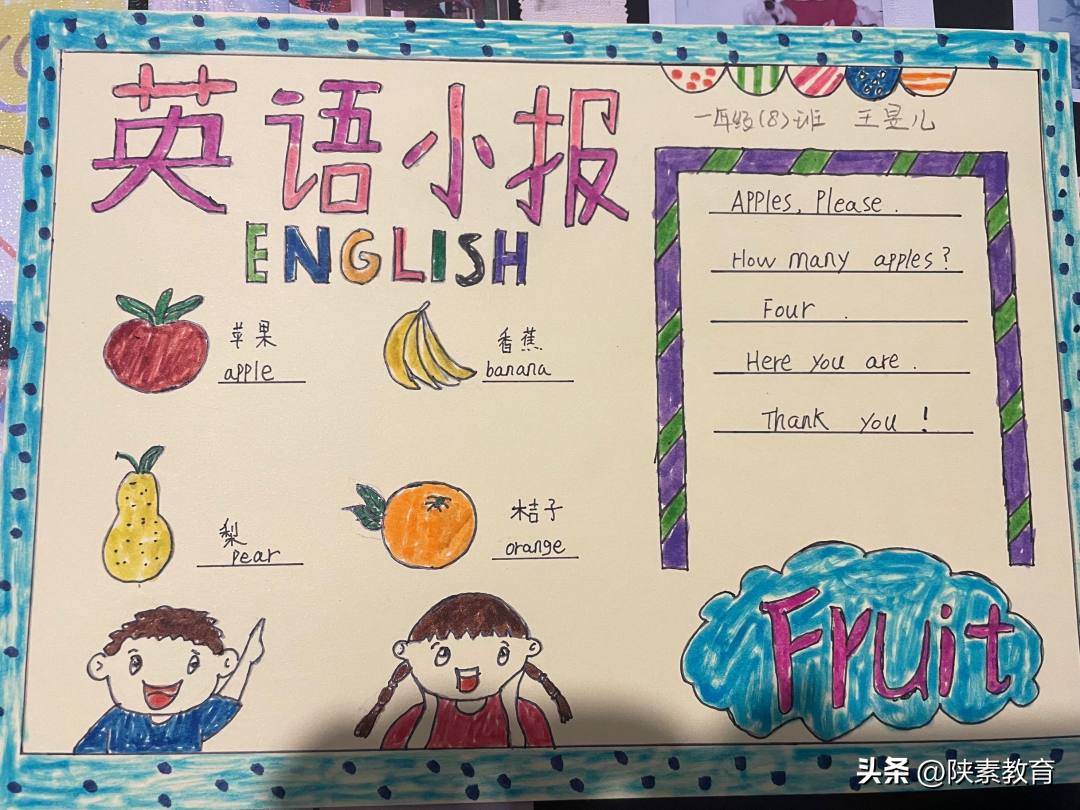 英语小报
ENGLISH
一年级(8)班 王昱儿
苹果
apple
香蕉
banana
梨
pear
桔子
orange
Apples, Please.
How many apples?
Four.
Here you are.
Thank you!
Fruit
头条 @陕素教育